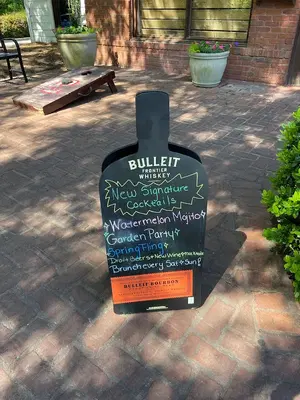 BULLEIT
FRONTIER
WHISKEY
New Signature
Cocktails
Watermelon Mojito
Garden Party
Spring Fling
Draft Beers New Wine
Brunch every Sat & Sun!
BULLEIT BOURBON